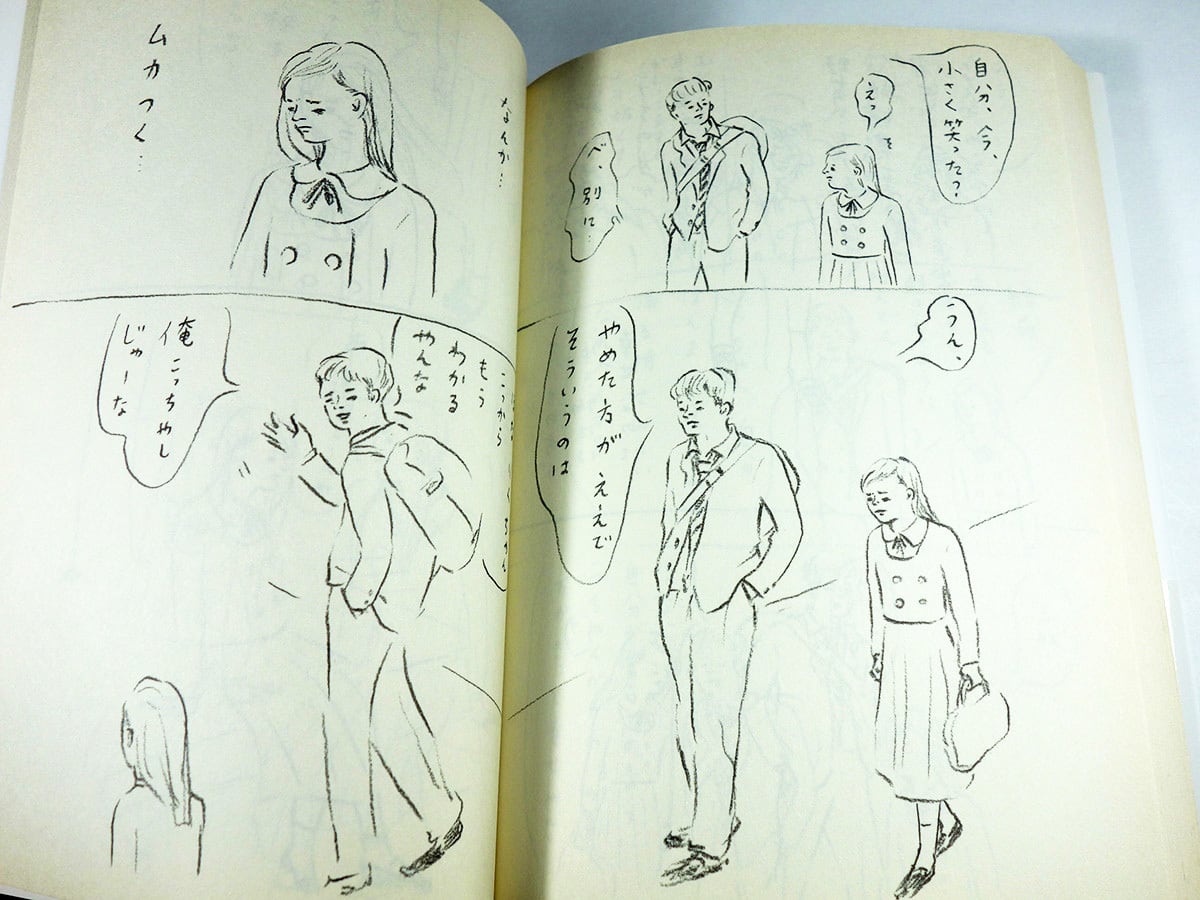 自分、今、
小さく笑った?
えっ
べ、別に…
うん、
やめた方がええで
そういうのは
なんか…
ムカつく…
こっから
もう
わかる
やんな
俺こっちやし
じゃーな